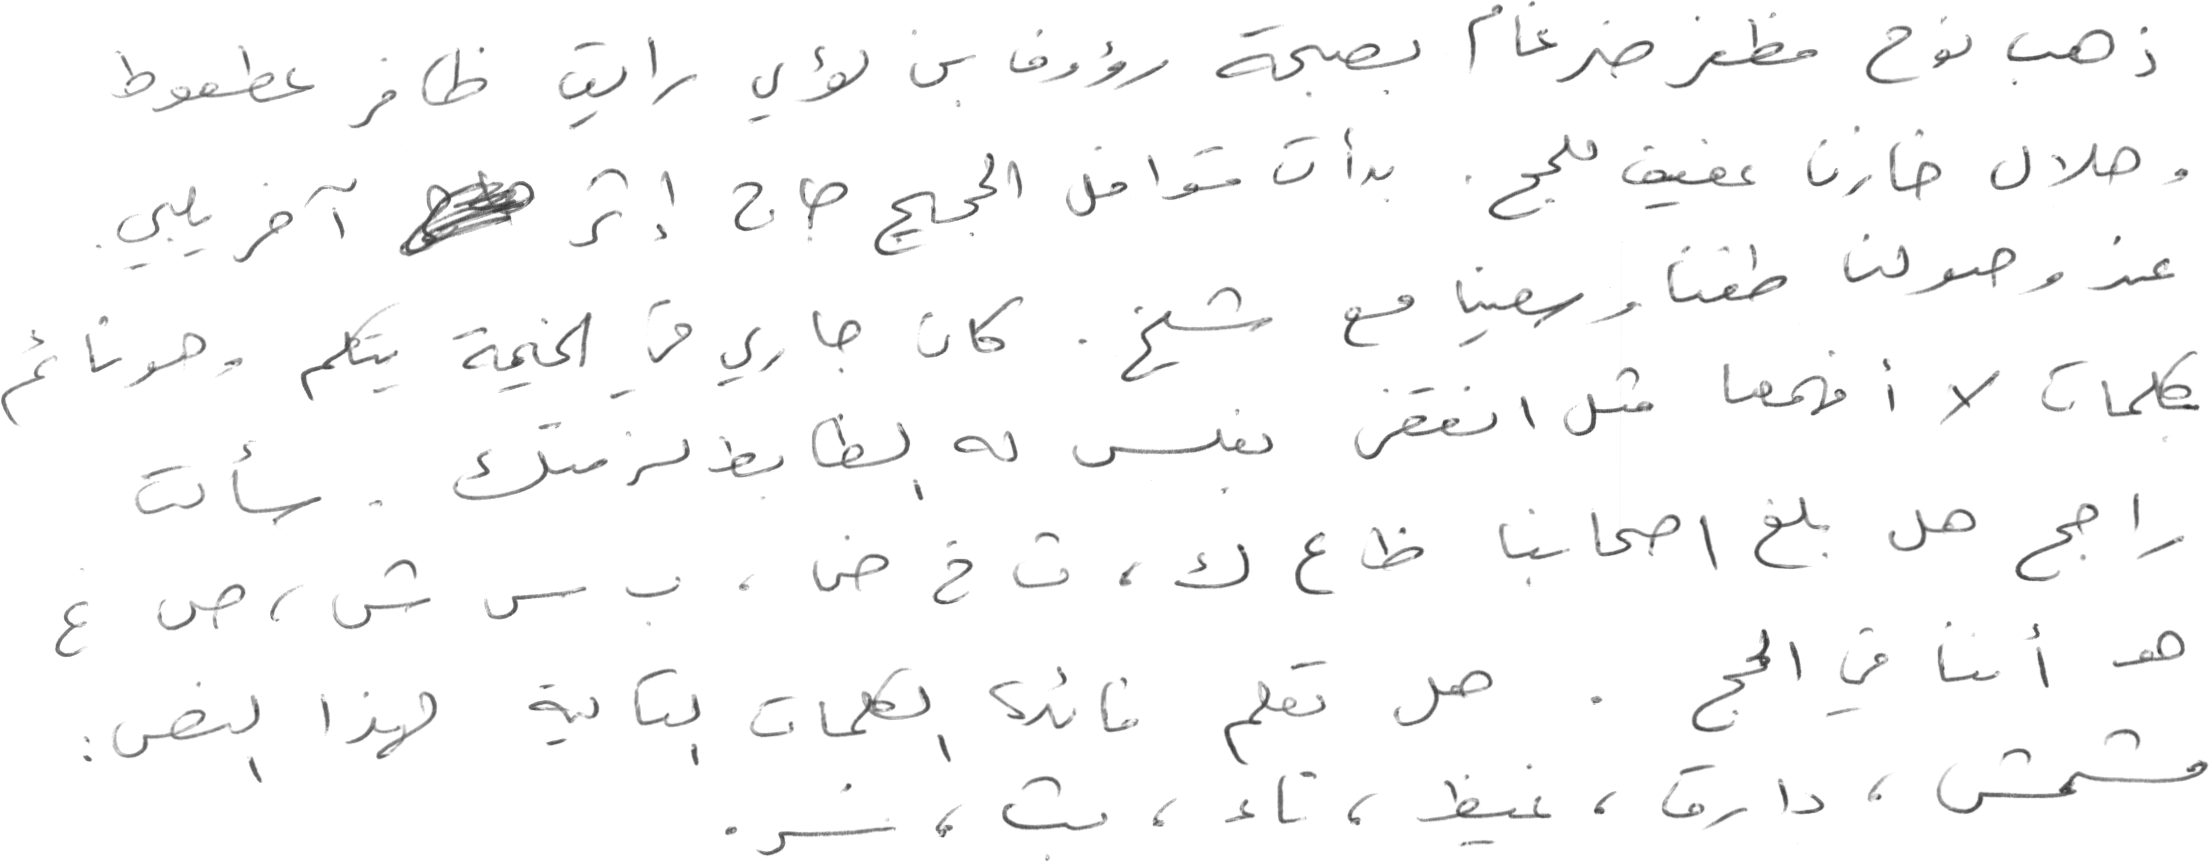 ذهب نوح مظفر ضرغام بصحبة رؤوف بن لؤي رايق ظافر عطعوط
وهلال خازن عفيف للحج. بدأت قوافل الحجيج حاج إثر آخر يلبي.
عند وصولنا طفنا وسعينا مع شيخ. كان جاري في الخيمة يتكلم وهو نائم
بكلمات لا أفهمها مثل انفقئ بغلس له الظابط لزمتك. سألت
راجح هل بلغ اصحابنا ظ ع ك، ت خ ض، ب س ش، ص غ
هـ أننا في الحج. هل تعلم فائدة الكلمات التالية لهذا النص:
مشمش، دارق، غيظ، تاء، بث، نسر.